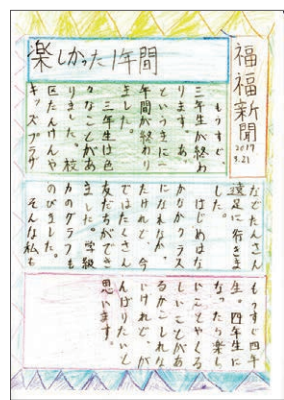 福福新聞
2017
3.21
楽しかった1年間
もうすぐ、
三年生が終わ
ります。あっ
というまに一
年間が終わり
ました。
三年生は色
々なことがあ
りました。校
区たんけんや
キッズプラザ
などたくさん
遠足に行きま
はじめはな
かなかクラス
になれなかっ
たけれど、今
ではたくさん
友だちができ
ました。学級
力のグラフも
のびました。
そんな私も
もうすぐ四年
生。四年生に
なったら楽し
いことやくる
しいことがあ
るかもしれな
いけれど、が
んばりたいと
思います。